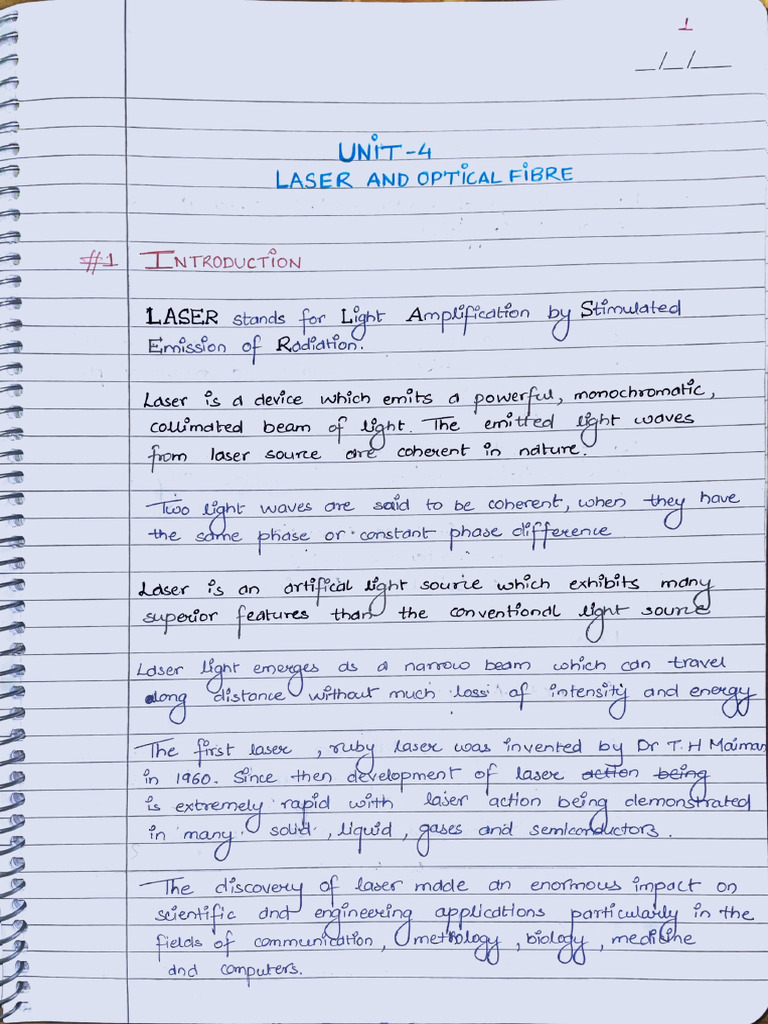 1
_/_/__
UNIT-4
LASER AND OPTICAL FIBRE
#1 INTRODUCTION
LASER stands for Light Amplification by Stimulated
Emission of Radiation.
Laser is a device which emits a powerful, monochromatic,
collimated beam of light. The emitted light waves
from laser source are coherent in nature.
Two light waves are said to be coherent, when they have
the same phase or constant phase difference
Laser is an artifical light source which exhibits many
superior features than the conventional light source
Laser light emerges as a narrow beam which can travel
along distance without much loss of intensity and energy
The first laser, ruby laser was invented by Dr T.H Maiman
in 1960. Since then development of laser action being
is extremely rapid with laser action being demonstrated
in many solid, liquid, gases and semiconductors.
The discovery of laser made an enormous impact on
scientific and engineering applications particularly in the
fields of communication, metrology, biology, medicine
and computers.